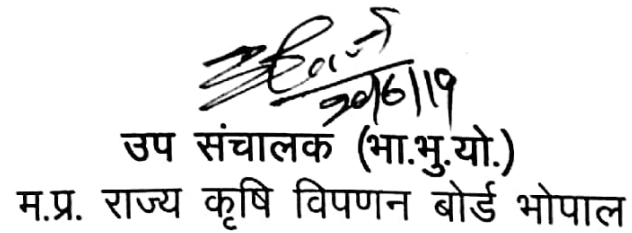 20/6/19
उप संचालक (भा.भु.यो.)
म.प्र. राज्य कृषि विपणन बोर्ड भोपाल